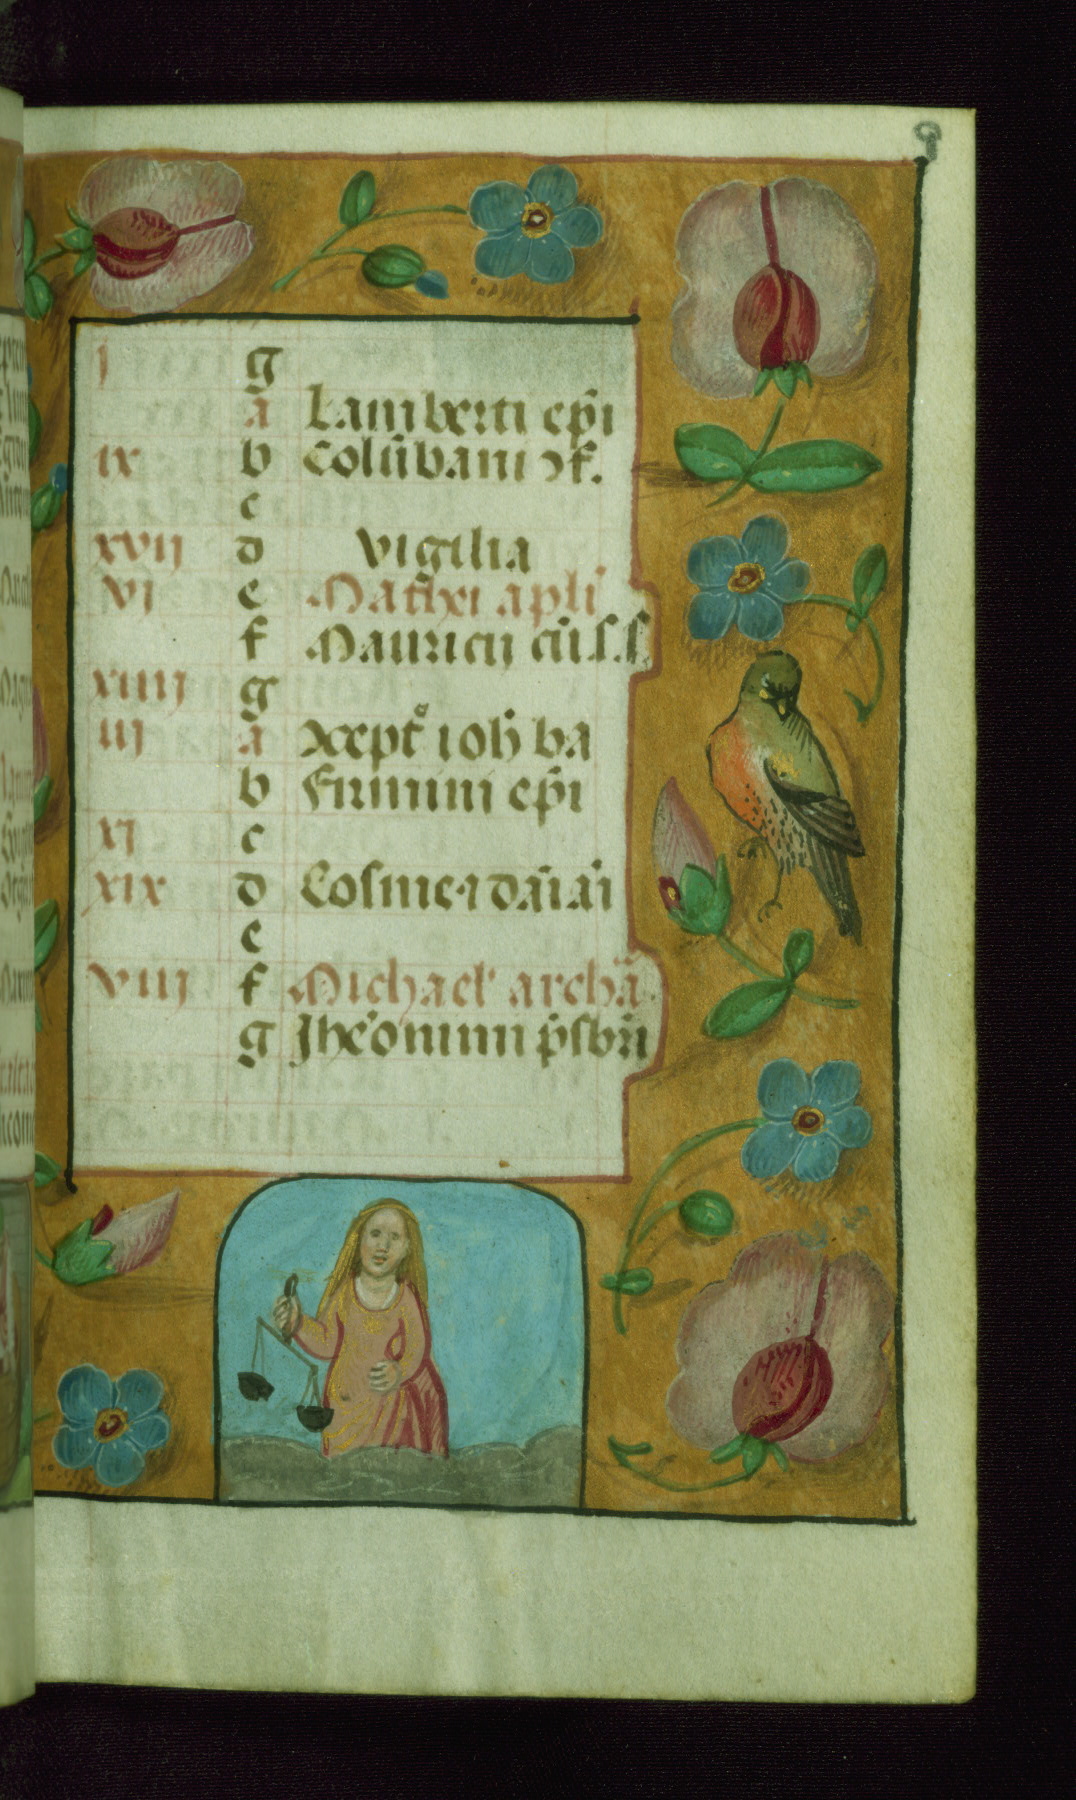 9
j g
a Lamberti epi
ix b Colūbani ɔf.
c
xvij d vigilia
vj e Mathei apli
f Mauricij cū s.s.
xiiij g
iij a xxptē ioh̄ ba
b Firmini epi
xj c
xix d Cosme ⁊ damiāi
e
viij f Michael' archā
g Jheronimi p̄sbri